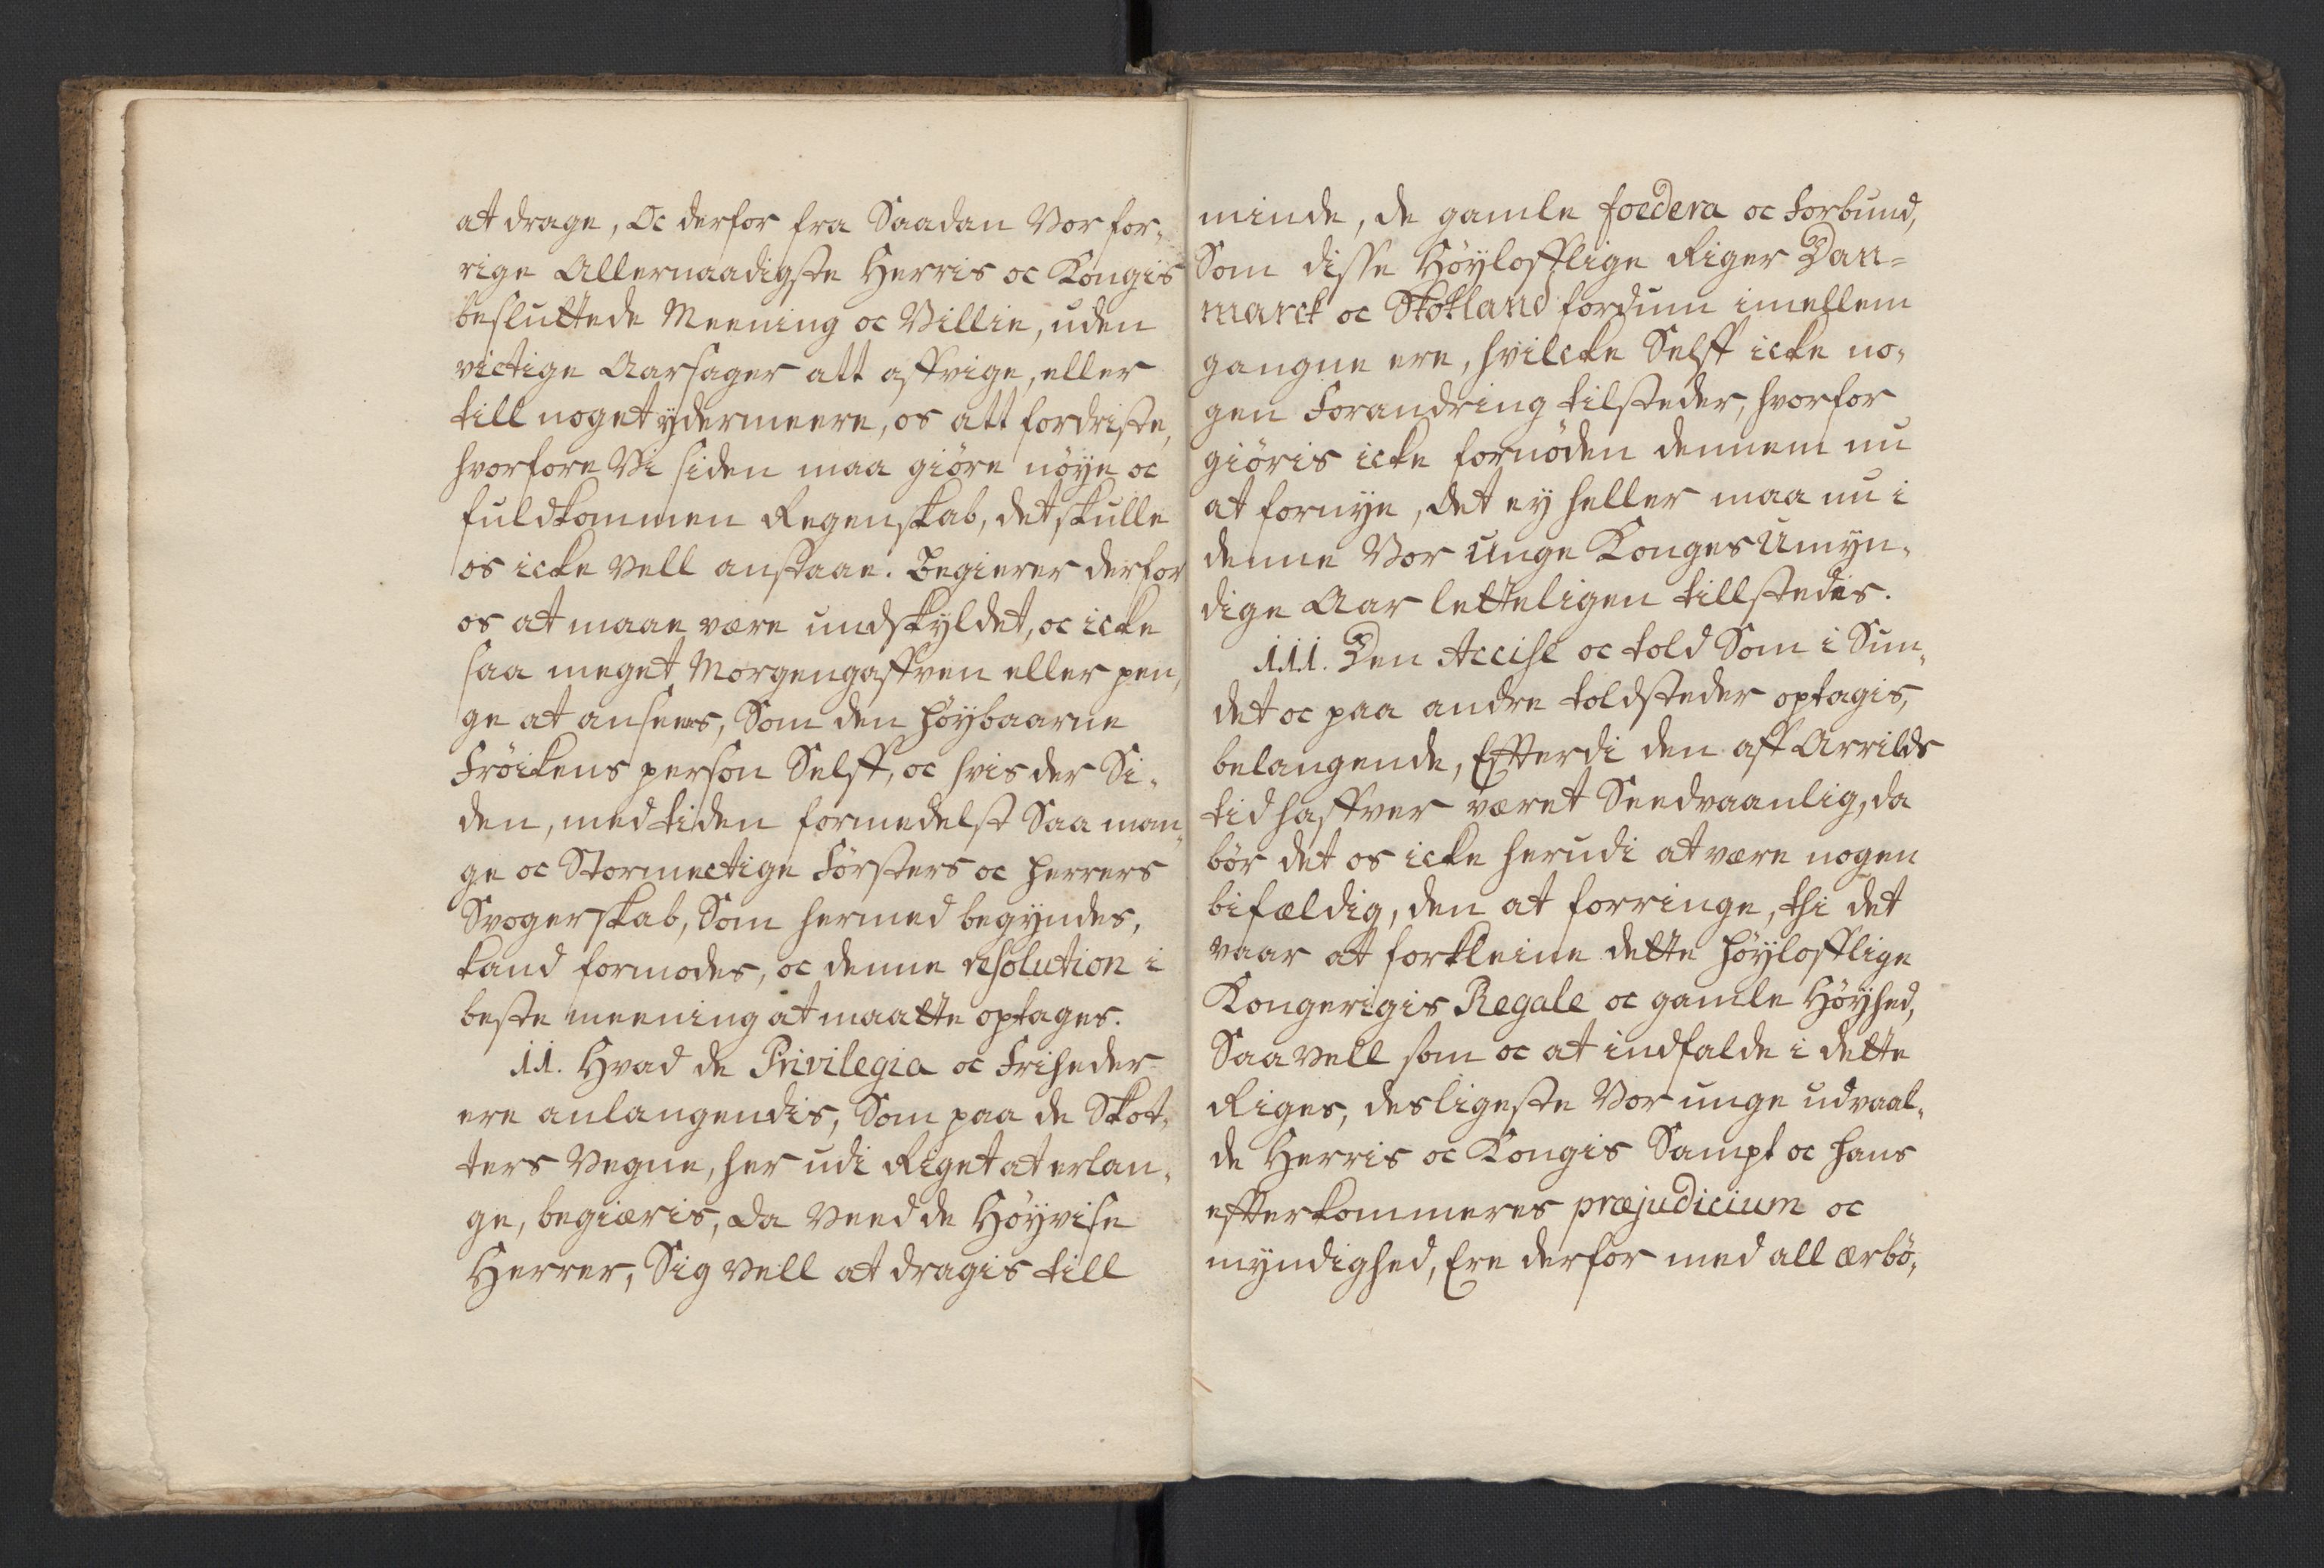 at drage, Oc derfor fra Saadan Vor for-
rige Allernaadigste Herris oc Kongis
besluttede Meening oc Villie, uden
victige Aarsager att affvige, eller
till noget ydermeere, os att fordriste,
hvorfore Vi siden maa giöre nöye oc
fuldkommen Regenskab, det skulle
os icke vell anstaae. Begierer derfor
os at maae være undskyldet, oc icke
saa meget Morgengaffven eller pen-
ge at ansees, Som den höybaarne
Fröikens person Selff, oc hvis der Si-
den, med tiden formedelst Saa man-
ge oc Stormectige Försters oc herrers
Svogerskab, Som hermed begyndes,
kand formodes, oc denne resolution i
beste meening at maatte optages.
11. Hvad de Privilegia oc Friheder
ere anlangendis, Som paa de Skot-
ters Vegne, her udi Riget at erlan-
ge, begiæris, da veed de Höyvise
Herrer, Sig vell at dragis till
minde, de gamle foedera oc Forbund,
Som disse Höylofflige Riger Dan=
marck oc Skotland fordum imellem
gangne ere, hvilcke Selff icke no-
gen Forandring tilsteder, hvorfor
giöris icke fornöden dennem nu
at fornye, det ey heller maa nu i
denne Vor Unge Konges Umyn-
dige Aar letteligen tillstedis.
111. Den Accise oc told Som i Sun-
det oc paa andre toldsteder optagis,
belangende, Efterdi den aff Arrilds
tid haffver været Seedvaanlig, da
bör det os icke herudi at være nogen
bifældig, den at forringe, thi det
vaar at forkleine dette höylofflige
Kongerigis Regale oc gamle Höyhed,
Saavell som oc at indfalde i dette
Riges, desligeste Vor unge udvaal-
de Herris oc Kongis Sampt oc hans
efterkommeres præjudicium oc
myndighed, Ere derfor med all ærbö-